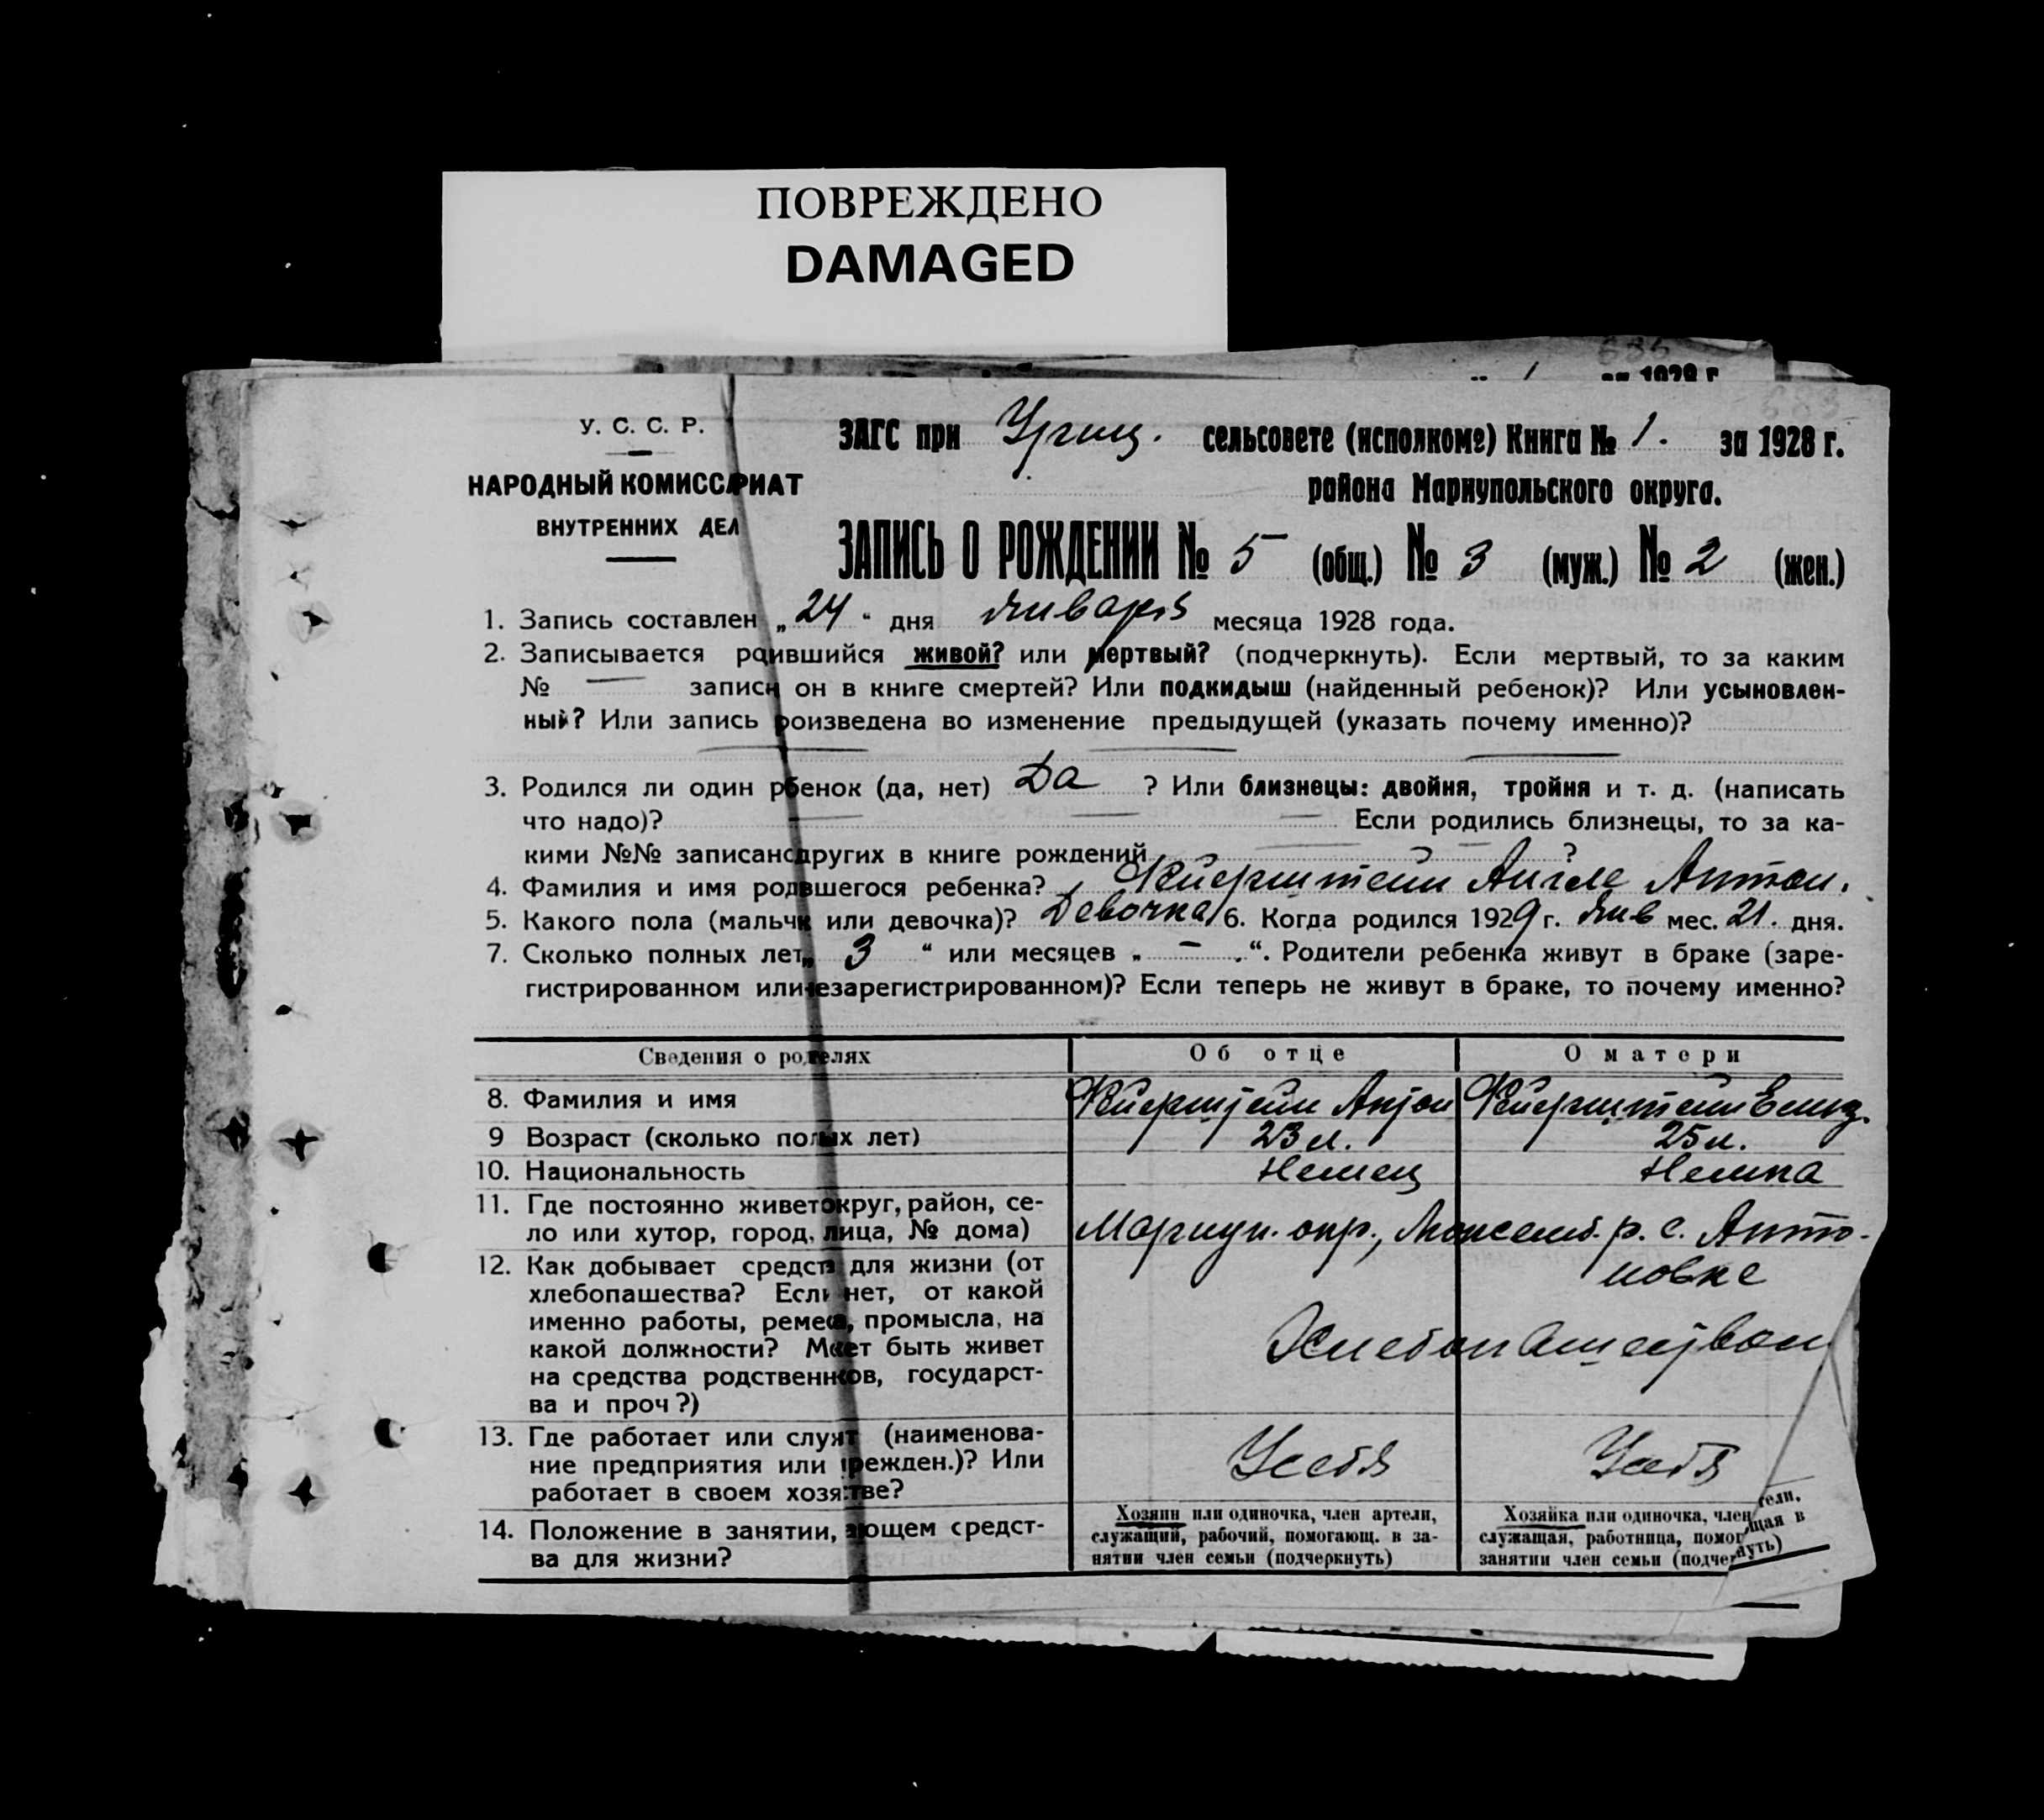 ПОВРЕЖДЕНО
DAMAGED
685
№ 1 за 1928 г.
683
У. С. С. Р.
НАРОДНЫЙ КОМИССАРИАТ
ВНУТРЕННИХ ДЕЛ
ЗАГС при Урлиц. сельсовете (исполкоме) Книга № 1. за 1928 г.
района Мариупольского округа.
ЗАПИСЬ О РОЖДЕНИИ № 5 (общ.) № 3 (муж.) № 2 (жен.)
1. Запись составлен „24“ дня января месяца 1928 года.
2. Записывается роившийся живой? или мертвый? (подчеркнуть). Если мертвый, то за каким
№ — записи он в книге смертей? Или подкидыш (найденный ребенок)? Или усыновлен-
ный? Или запись роизведена во изменение предыдущей (указать почему именно)?
3. Родился ли один рбенок (да, нет) Да ? Или близнецы: двойня, тройня и т. д. (написать
что надо)? — — — Если родились близнецы, то за ка-
кими №№ записано других в книге рождений — — ?
4. Фамилия и имя родвшегося ребенка? Кйерштейн Ангеле Антон.
5. Какого пола (мальчи или девочка)? Девочка 6. Когда родился 1929 г. Янв мес. 21. дня.
7. Сколько полных лет „ 3 “ или месяцев „ — “. Родители ребенка живут в браке (заре-
гистрированном или незарегистрированном)? Если теперь не живут в браке, то почему именно?
Сведения о родтелях Об отце О матери
8. Фамилия и имя Кйерштейн Антон Кйерштейн Елиз.
9 Возраст (сколько полых лет) 23 л. 25 л.
10. Национальность Немец Немка
11. Где постоянно живет округ, район, се-
ло или хутор, город, лица, № дома) Мариуп. окр., Люксемб. р. с. Анто-
новке
12. Как добывает средст для жизни (от
хлебопашества? Если нет, от какой
именно работы, ремеса, промысла, на
какой должности? Мжет быть живет
на средства родственнков, государст-
ва и проч?)
Хлебопашеством
13. Где работает или служт (наименова-
ние предприятия или чрежден.)? Или
работает в своем хозятве?
У себя У себя
14. Положение в занятии, ающем средст-
ва для жизни?
Хозяин или одиночка, член артели,
служащий, рабочий, помогающ. в за-
нятии член семьи (подчеркнуть)
Хозяйка или одиночка, член тели,
служащая, работница, помог щая в
занятии член семьи (подчернуть)